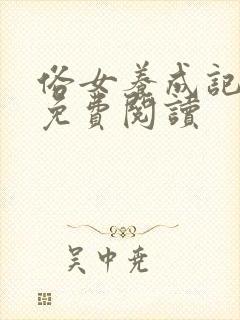 俗女養成記
免費閱讀
吳中堯